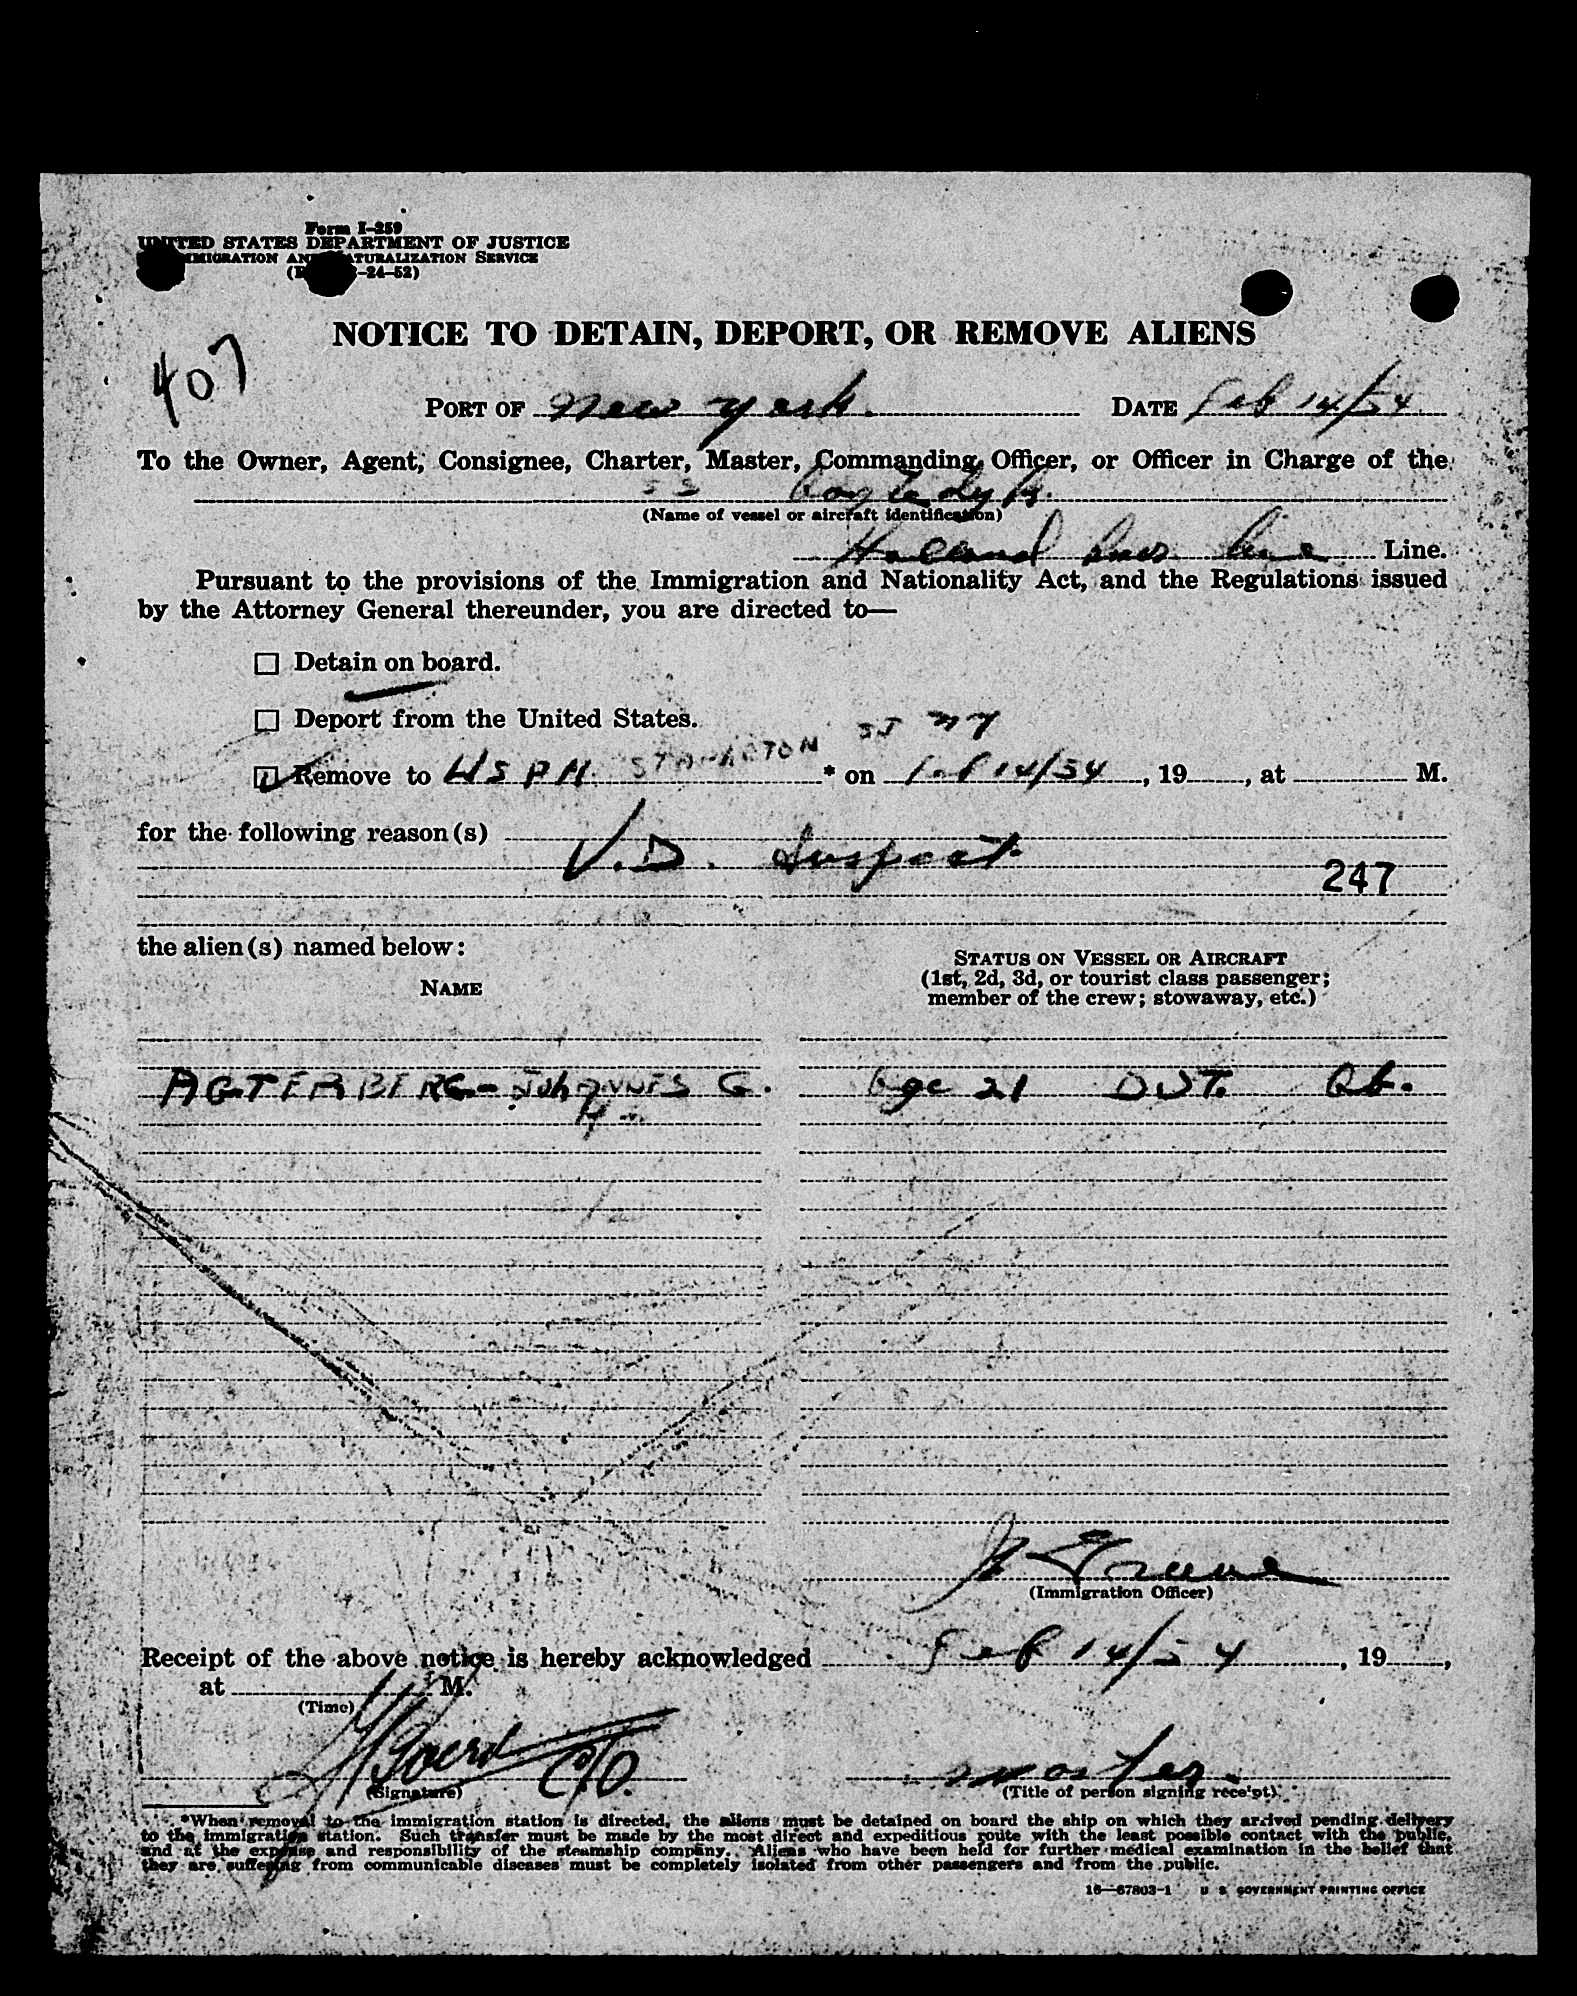 Form I-259
UNITED STATES DEPARTMENT OF JUSTICE
IMMIGRATION AND NATURALIZATION SERVICE
-24-52)
NOTICE TO DETAIN, DEPORT, OR REMOVE ALIENS
407
PORT OF New York. DATE Feb 14/54
To the Owner, Agent, Consignee, Charter, Master, Commanding Officer, or Officer in Charge of the
SS
(Name of vessel or aircraft identification)
Holland Line Line.
Pursuant to the provisions of the Immigration and Nationality Act, and the Regulations issued
by the Attorney General thereunder, you are directed to—
Detain on board.
Deport from the United States.
ST NY
Remove to USPH STAPLETON * on Feb 14/54, 19 , at M.
for the following reason(s)
V.D. Suspect
247
the alien(s) named below:
NAME
STATUS ON VESSEL OR AIRCRAFT
(1st, 2d, 3d, or tourist class passenger;
member of the crew; stowaway, etc.)
AGTERBERG- JOHANNES G. Age 21 DUT.
(Immigration Officer)
Receipt of the above notice is hereby acknowledged Feb 14/54, 19 ,
at M.
(Time)
C/O. master.
(Signature) (Title of person signing rece'pt)
*When removal to the immigration station is directed, the aliens must be detained on board the ship on which they arrived pending delivery
to the immigration station. Such transfer must be made by the most direct and expeditious route with the least possible contact with the public,
and at the expense and responsibility of the steamship company. Aliens who have been held for further medical examination in the belief that
they are suffering from communicable diseases must be completely isolated from other passengers and from the public.
16—67803-1 U S GOVERNMENT PRINTING OFFICE